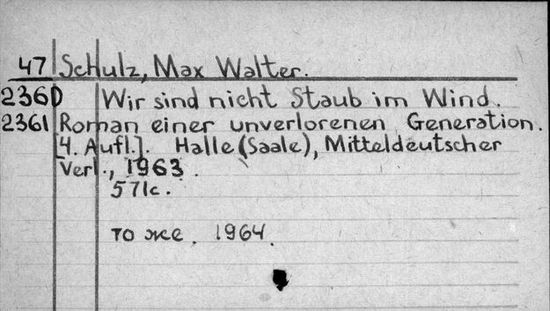 47 Schulz, Max Walter.
2360 Wir sind nicht Staub im Wind.
2361 Roman einer unverlorenen Generation.
[4. Aufl.]. Halle (Saale), Mitteldeutscher
Verl., 1963.
571c.
то же. 1964.